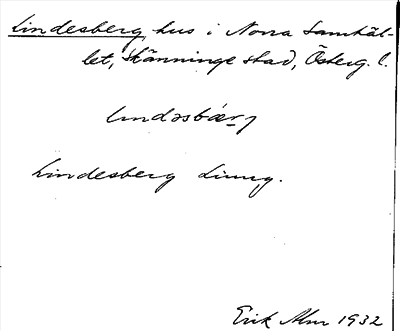 Lindesberg, hus i Norra Samhäl-
let, Skänninge stad, Österg. l.
lındəsbær̠j
Lindesberg Ljung.
Erik Alm 1932